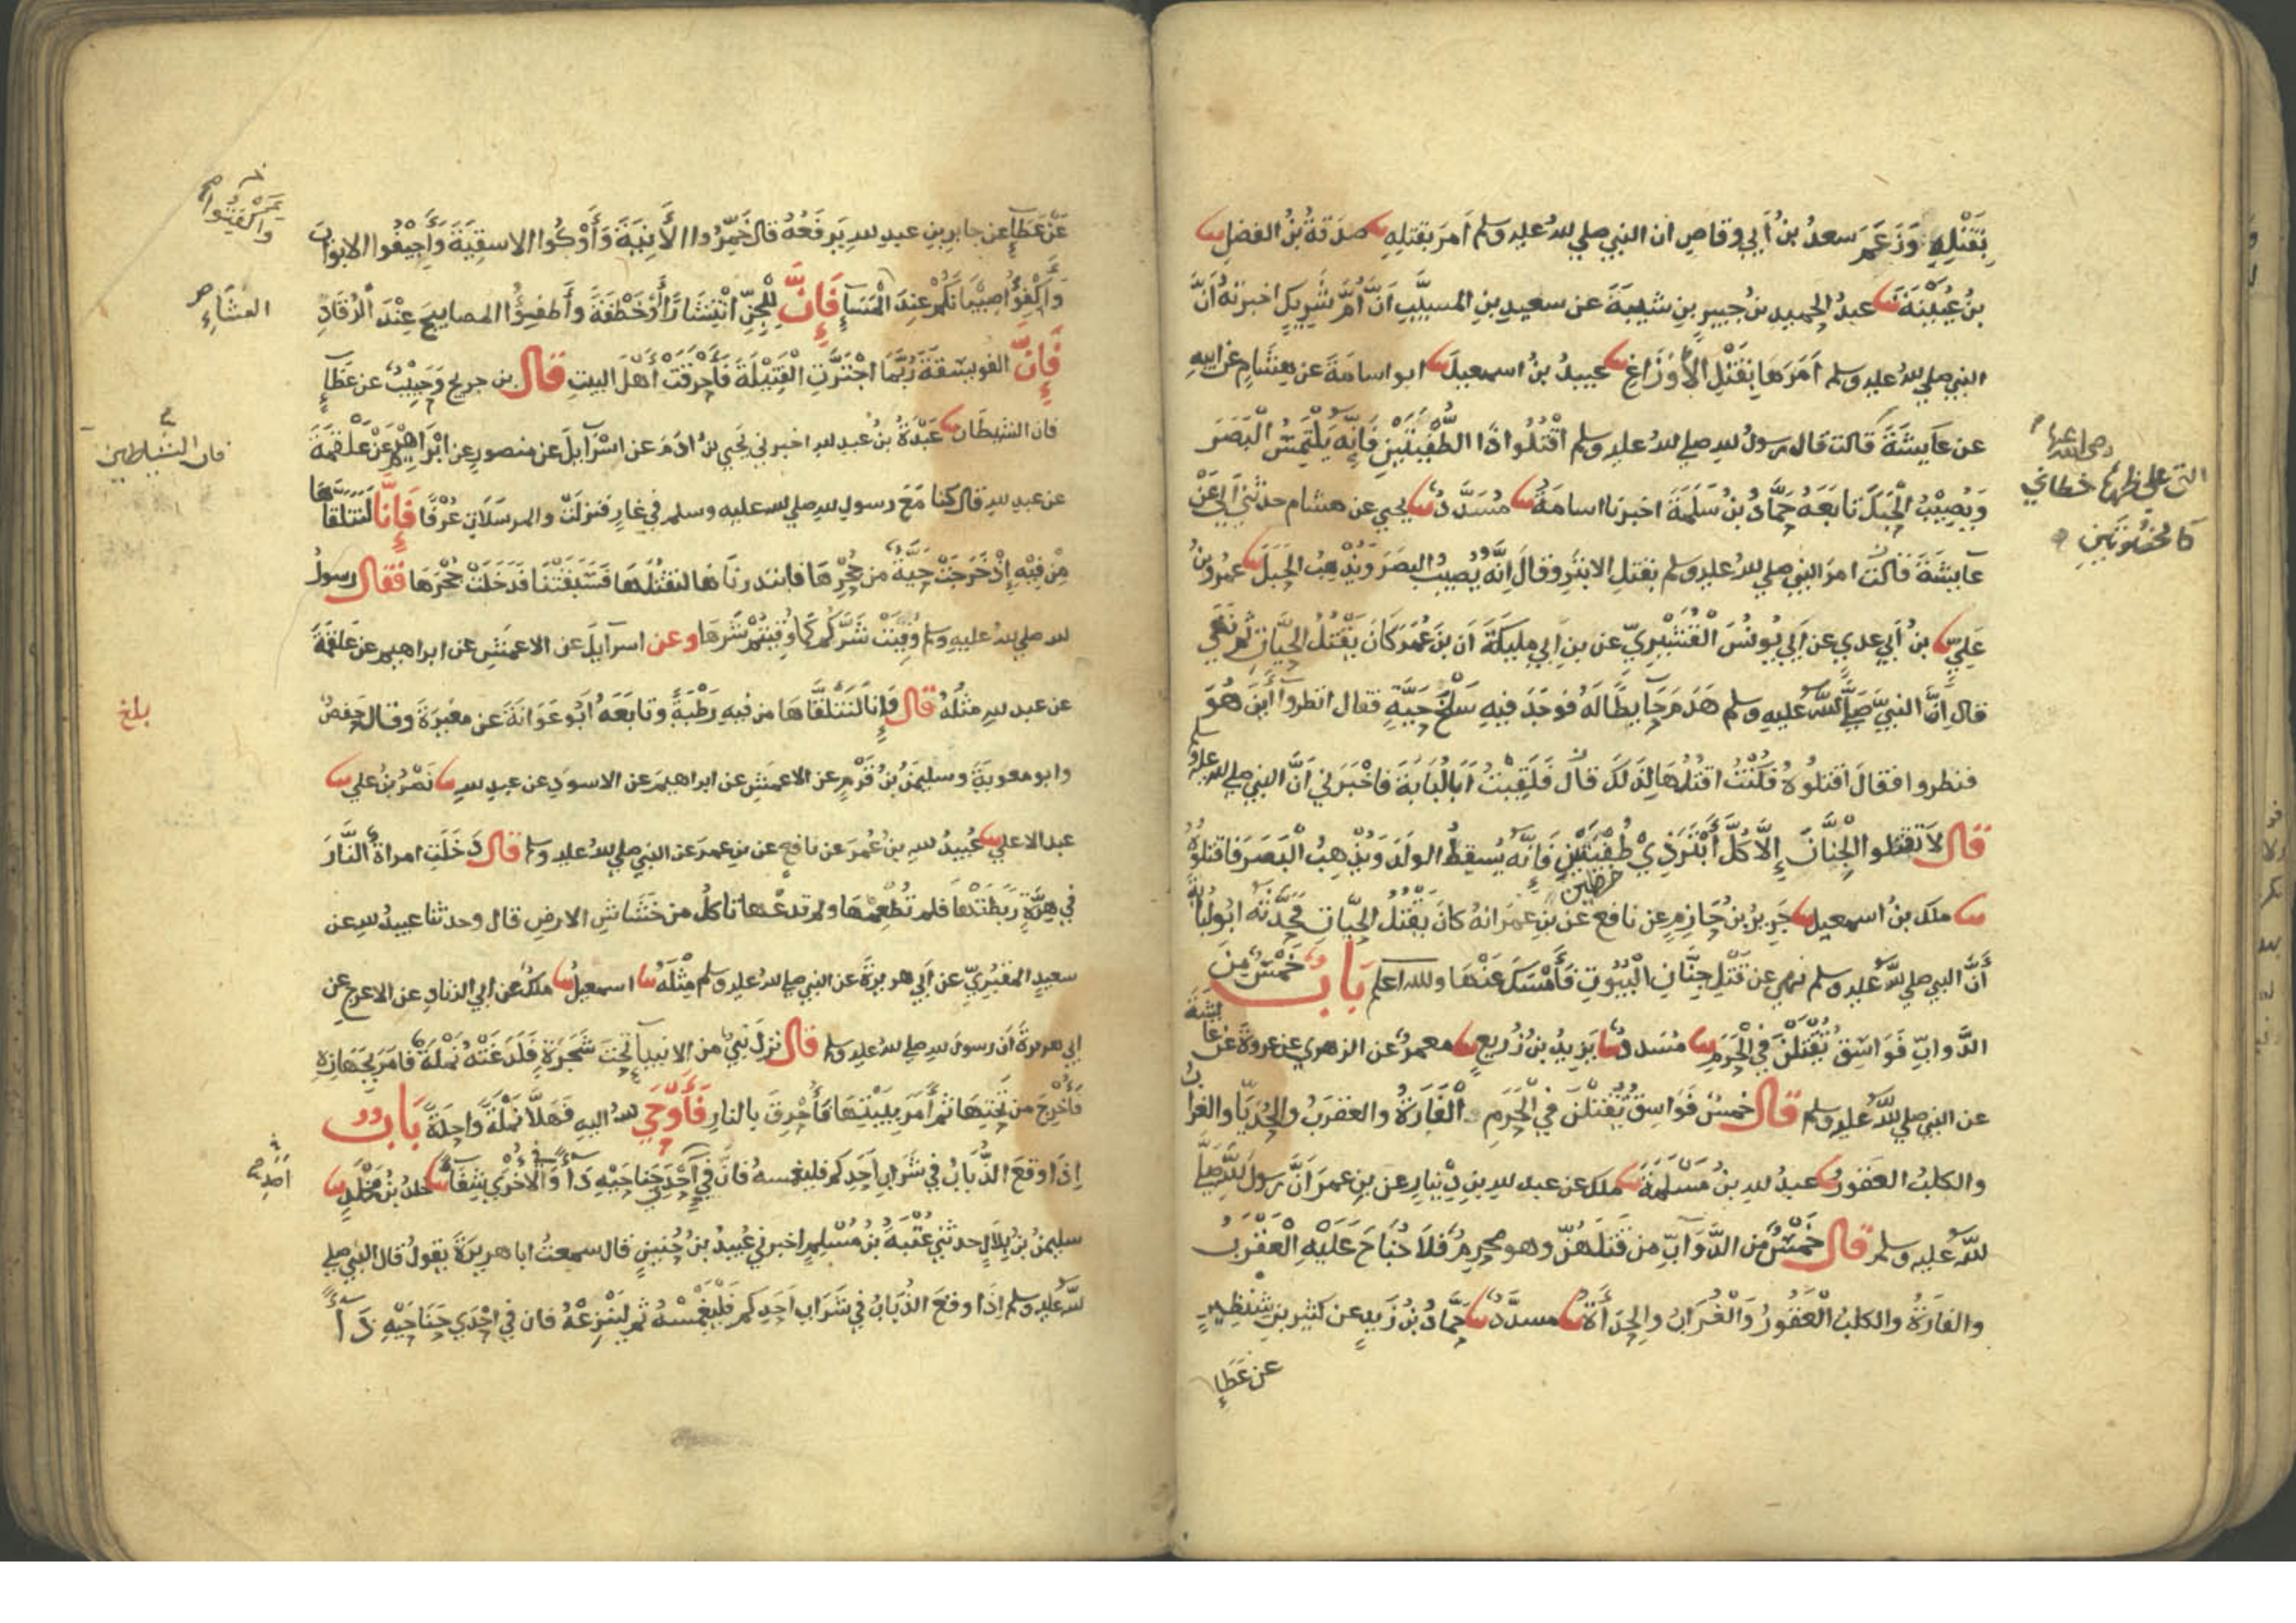 بِقَتْلِهِ وَزَعَمَ سعدُ بنُ أَبي وقاصٍ ان النبي صلي لله عليه وسلم أمَرَ بقتلِهِ صدَقةُ بنُ الفضلِ
بنُ عُيَيْنَةَ عبدُ الحميدِ بنُ جبيرِ بنِ شيبةَ عن سعيدِ بنِ المسيَّبِ أنَّ أُمَّ شَرِيكٍ اخبرَتْهُ أنَّ
النبيَّ صلي لله عليه وسلم أمَرَهَا بِقَتْلِ الأَوْزَاغِ عبيدُ بنُ اسمعيلَ ابو اسامةَ عن هِشَامٍ عن ابيهِ
عن عَايشَةَ قالت قال رسولُ لله صلي لله عليه وسلم اقْتُلُوا ذَا الطُّفْيَتَيْنِ فَإِنَّه يَلْتَمِسُ الْبَصَرَ
وَيُصِيْبُ الْحَبَلَ تابَعَهُ حَمَّادُ بنُ سَلَمَةَ اخبرنا اسامةَ مُسَدَّدٌ يحيي عن هشام حدثني أَبي عَنْ
عايشَةَ قالت امرَ النبي صلي لله عليه وسلم بقتلِ الابترِ وقالَ إِنَّهُ يُصِيبُ البصَرَ وَيُذْهِبُ الحَبَلَ عمرو بنُ
عَلِيٍّ بنُ أبي عدي عن أَبي يُونُسَ الْقُشَيْرِيِّ عن بنِ أبي مليكَةَ أن بنَ عُمَرَ كَانَ يَقْتُلُ الحَيَّاتِ ثم نَهَي
قال إِنَّ النبيَّ صلي لله عليه وسلم هَدَمَ حَايِطًا لَهُ فوجَدَ فِيهِ سَلْخَ حَيَّةٍ فقال انظروا أَيْنَ هُوَ
فنظروا فقالَ اقتلُوهُ فكُنْتُ اقْتُلُهَا لذلكَ قال فَلَقِيتُ أَبَا لُبَابَةَ فَاخْبَرَني أنَّ النبي صلي لله عليه وسلم
قال لاَ تقتلوا الْجِنَّانَ إِلاَّ كُلَّ أَبْتَرَ ذِيْ طُفْيَتَيْنِ فَإِنَّهُ يُسقِطُ الولَدَ وَيُذْهِبُ الْبَصَرَ فاقتلُوهُ
ملك بنُ اسمعيل جَرِيرُ بنُ حَازِمٍ عن نافع عن بنِ عمرَ انهُ كانَ يَقْتُلُ الحَيَّاتِ فحَدَّثَهُ ابُو لبابةَ
أَنَّ النبي صلي لله عليه وسلم نهي عن قَتْلِ جِنَّانِ الْبُيُوتِ فَأَمْسَكَ عَنْهَا ولله اعلم بَابٌ خَمْسٌ مِنَ
الدَّوابِّ فَوَاسِقُ يُقْتَلْنَ فِي الْحَرَمِ مُسَددٌ يَزِيدُ بنُ زُرَيعٍ معمرٌ عن الزهري عن عروةَ عن عايشةَ
عن النبي صلي لله عليه وسلم قال خمسٌ فَوَاسِقُ يُقْتَلْنَ فِي الْحَرَمِ الْفَارَةُ والعقرَبُ والحُدَيَّا والغرابُ
والكلبُ العَقورُ عبدُ لله بنُ مَسْلَمَةَ ملك عن عبد لله بنِ دِيْنَارٍ عن بنِ عمرَ أنَّ رسولَ لله صلي
لله عليه وسلم قال خَمْسٌ من الدَّوَابِّ من قَتَلَهُنَّ وهو محرِمٌ فلاَ جُنَاحَ عَلَيْهِ الْعَقْرَبُ
والفارَةُ والكلبُ الْعَقُورُ وَالْغُرَابُ والحِدَأَةُ مسدَّدٌ حَمَّادُ بنُ زَيدٍ عن كثيرِ بنِ شِنْظِيرٍ
عن عَطَاءٍ
رضي الله عنها
التي علي ظهرها خطان
كالخوصتين
خطين
عَنْ عَطَاءٍ عن جابرِ بنِ عبدِ لله يَرفَعُهُ قال خَمِّرُوا الْأَنِيَةَ وَأَوْكُوا الاسقِيَةَ وَأَجِيْفُوا الابوابَ
وَاكْفِؤُا صِبْيَانَكُمْ عِنْدَ الْمَسَاءِ فَإِنَّ لِلْجِنِّ انْتِشَارًا أَوْ خَطْفَةً وَأَطفِؤُا المصابيحَ عِنْدَ الرُّقَادِ
فَإِنَّ الفويسَقَةَ رُبَّمَا اجْتَرَّتِ الْفَتِيْلَةَ فَأَحْرَقَتْ أَهْلَ البيتِ قال بن جريج وَحَبِيْبٌ عن عَطَاءٍ
فان الشيطان عَبْدَةُ بنُ عبدِ لله اخبرني يَحيي بنُ ادَمَ عن اسْرَايلَ عن منصورٍ عن ابْرَاهيم عَنْ عَلْقَمَةَ
عن عبدِ لله قال كنا مَعَ رسولِ لله صلي لله عليه وسلم في غارٍ فنزلَتْ والمرسَلاتِ عُرْفًا فَإِنَّا لنتلقَّاهَا
مِنْ فِيْهِ إِذْ خَرَجَتْ حَيَّةٌ من جُحْرِهَا فابتدرنَاهَا لنقتُلَهَا فسَبَقَتْنَا فَدَخَلَتْ جُحْرَهَا فقال رسولُ
لله صلي لله عليه وسلم وُقِيَتْ شَرَّكُمْ كَمَا وُقِيتُمْ شَرَّهَا وعن اسرايلَ عن الاعمَشِ عن ابراهيم عن علقمَةَ
عن عبد لله مثلَهُ قال فَإِنا لَنَتَلَقَّاهَا من فيهِ رَطْبَةً وتابَعَهُ أَبُو عَوَانَةَ عن مغِيرَةَ وقال حفصٌ
وابو معويَةَ وسليمنُ بنُ قَرْمٍ عن الاعمَشِ عن ابراهيمَ عن الاسودِ عن عبد لله نَصْرُ بنُ علي
عبد الاعلي عُبَيدُ لله بنُ عُمَرَ عن نافعٍ عن بنِ عمرَ عن النبي صلي لله عليه وسلم قال دَخَلَتِ امراةٌ النَّارَ
في هِرَّةٍ رَبَطَتْهَا فلم تُطْعِمْهَا ولم تدعْهَا تاكلُ من خَشَاشِ الارضِ قال وحدثنا عبيدُ لله عن
سعيدٍ المقبُرِيِّ عن أبي هريرةَ عن النبي صلي لله عليه وسلم مِثْلَهُ اسمعيلُ ملكٌ عن ابي الزنادِ عن الاعرجِ عن
ابي هريرةَ أن رسولَ لله صلي لله عليه وسلم قال نزلَ نَبِيٌّ من الانبياءِ تَحْتَ شَجَرَةٍ فلَدَغَتْهُ نَمْلَةٌ فامَرَ بِجَهَازِهِ
فأُخْرِجَ من تَحْتِهَا ثم أَمَرَ بِبَيْتِهَا فَأُحْرِقَ بالنارِ فَأَوْحَي لله اليهِ فَهَلاَّ نَمْلَةً واحِدَةً بَابٌ
إِذَا وقعَ الذُّبَابُ في شَرَابِ أَحَدِكم فليغمسهُ فانَّ في احْدَي جَنَاحَيْهِ دَاءً وَالأُخْرَي شِفَاءً خلدُ بنُ مَخْلَدٍ
سليمنُ بنُ بِلاَلٍ حدثني عُتْبَةُ بنُ مُسْلِمٍ اخبرني عُبَيدُ بنُ حُنَينٍ قال سمعتُ ابا هريرَةَ يقولُ قال النبي صلي
لله عليه وسلم إِذَا وقعَ الذُّبَابُ في شَرَابِ احَدِكم فَلْيَغْمِسْهُ ثم لِيَنْزِعْهُ فان في احْدَي جَنَاحَيْهِ دَاءً
واكفتوا
العشاءِ
فان الشياطين
بلغ